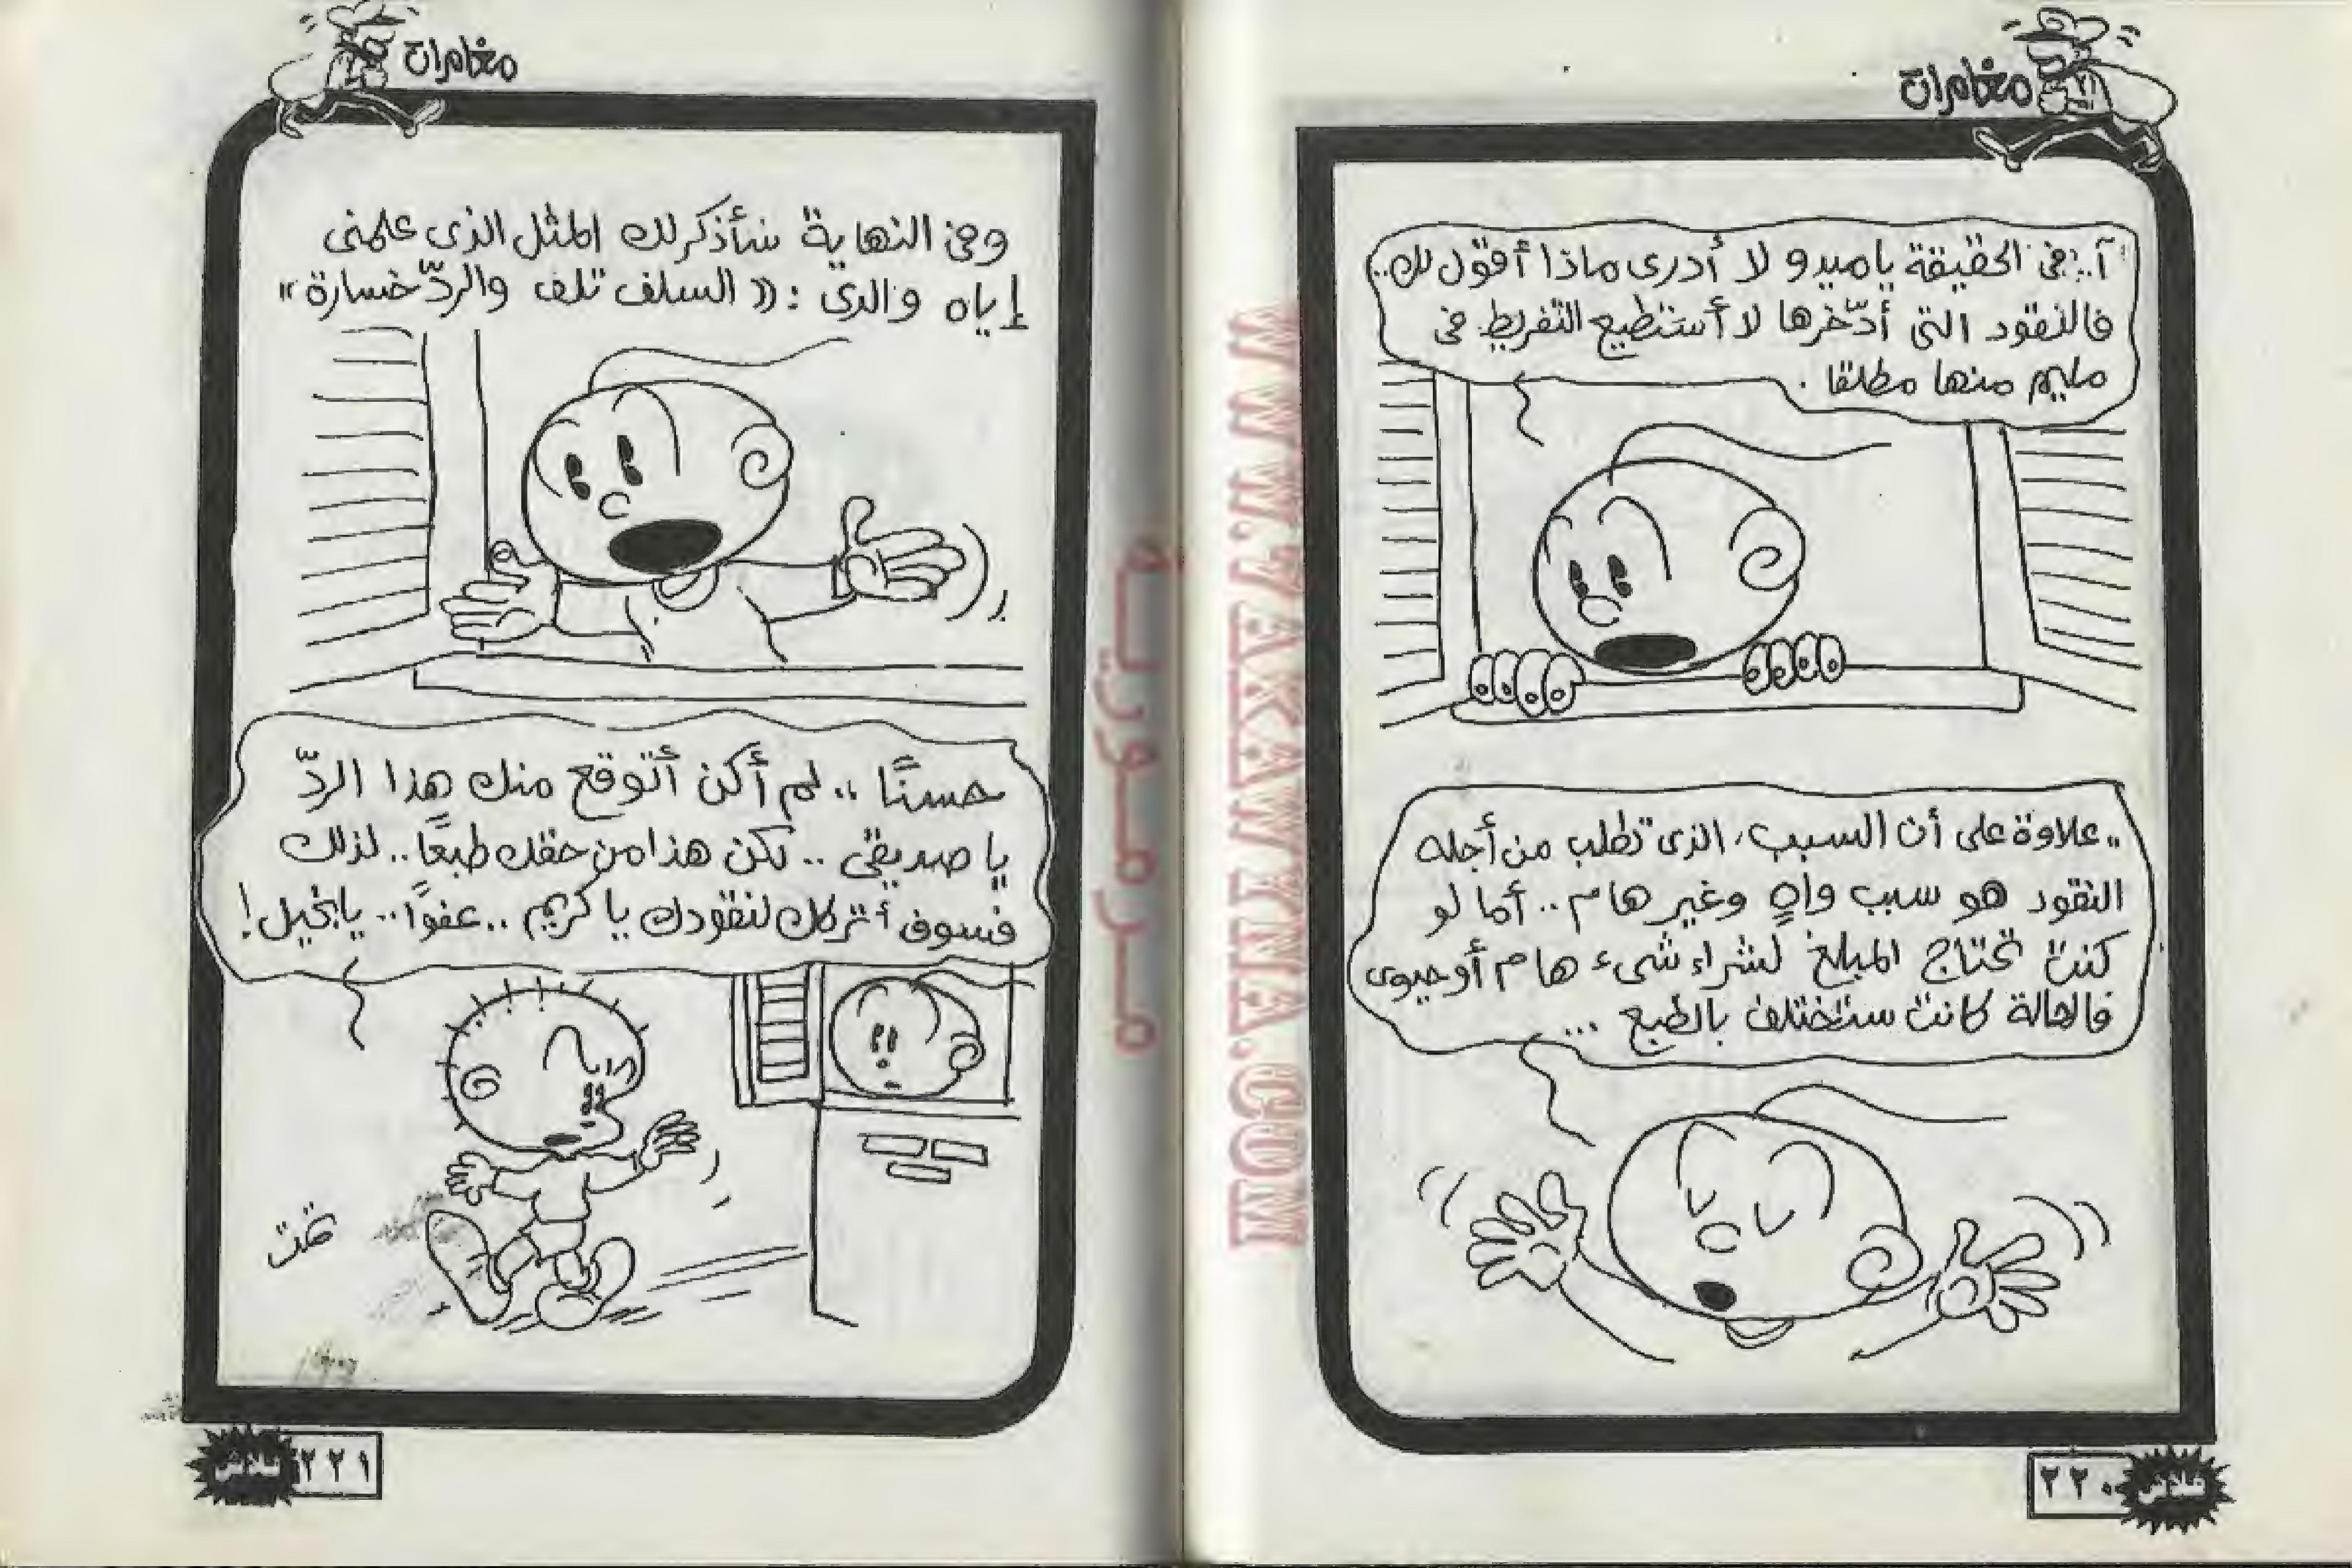 مغامرات
آ.. فى الحقيقة يا ميدو لا أدرى ماذا أقول لك..
فالنقود التى أدّخرها لا أستطيع التفريط فى
مليم منها مطلقا.
.. علاوة على أن السبب، الذى تطلب من أجله
النقود هو سبب واهٍ وغير هام.. أما لو
كنت تحتاج المبلغ لشراء شىء هام أو حيوى
فالحالة كانت ستختلف بالطبع ...
٢٢٠
فلاش
مغامرات
وفى النهاية سأذكر لك المثل الذى علمنى
إياه والدى: «السلف تلف والردّ خسارة»
حسنًا .. لم أكن أتوقع منك هذا الردّ
يا صديقى .. لكن هذا من حقك طبعًا.. لذلك
فسوف أتركك لنقودك يا كريم .. عفوًا.. يا بخيل!
تمت
٢٢١
فلاش
WWW.YAKAWYNA.COM
مرمورية